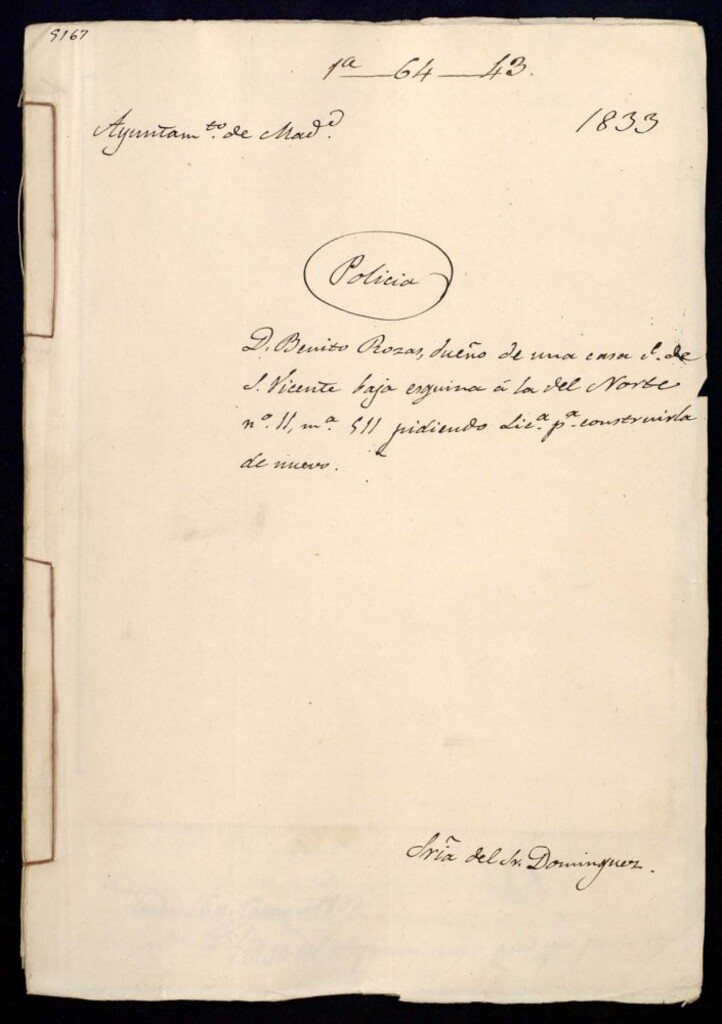 5167
1ª—64—43.
Ayuntam.to de Mad.d
1833
Policia
D. Benito Rozas, dueño de una casa c. de
S. Vicente baja esquina á la del Norte
n.º 11, m.ª 511 pidiendo Lic.ª p.ª construirla
de nuevo.
Sría del Sr. Dominguez.